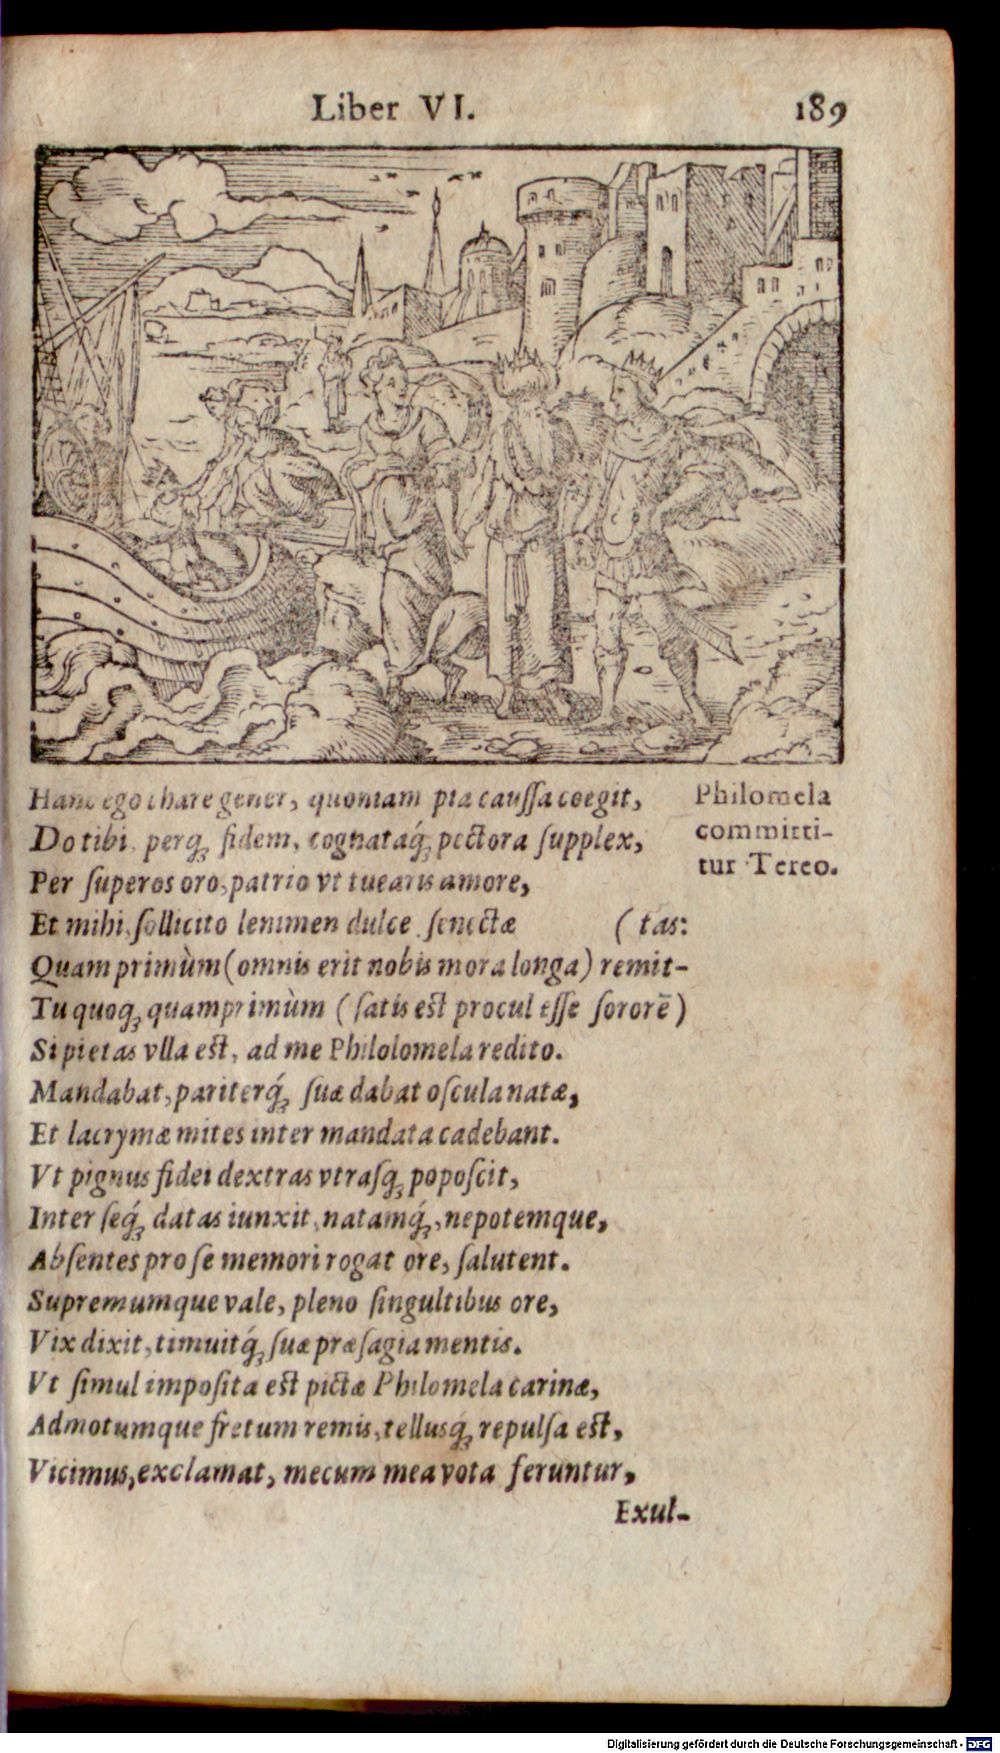 Liber VI.
189
Hanc ego chare gener, quoniam pia caussa coegit,
Do tibi. perq́; fidem, cognataq́; pectora supplex,
Per superos oro, patrio vt tuearis amore,
Et mihi sollicito lenimen dulce senectæ
(tas:
Quam primùm (omnis erit nobis mora longa) remit-
Tu quoq; quamprimùm (satis est procul esse sororē)
Si pietas vlla est, ad me Philolomela redito.
Mandabat, pariterq́; suæ dabat oscula natæ,
Et lacrymæ mites inter mandata cadebant.
Vt pignus fidei dextras vtrasq; poposcit,
Inter seq́; datas iunxit, natamq́;, nepotemque,
Absentes pro se memori rogat ore, salutent.
Supremumque vale, pleno singultibus ore,
Vix dixit, timuitq́; suæ præsagia mentis.
Vt simul imposita est pictæ Philomela carinæ,
Admotumque fretum remis, tellusq́; repulsa est,
Vicimus, exclamat, mecum mea vota feruntur,
Exul-
Philomela
committi-
tur Tereo.
Digitalisierung gefördert durch die Deutsche Forschungsgemeinschaft - DFG